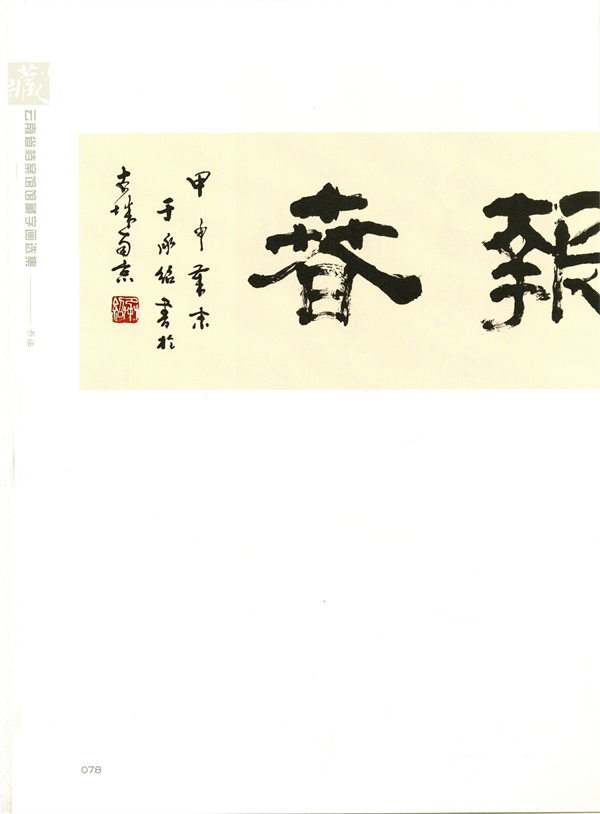 藏
云南省档案馆馆藏字画选集 —— 书法
報春
甲申末
于承紹書於
古城南京
078